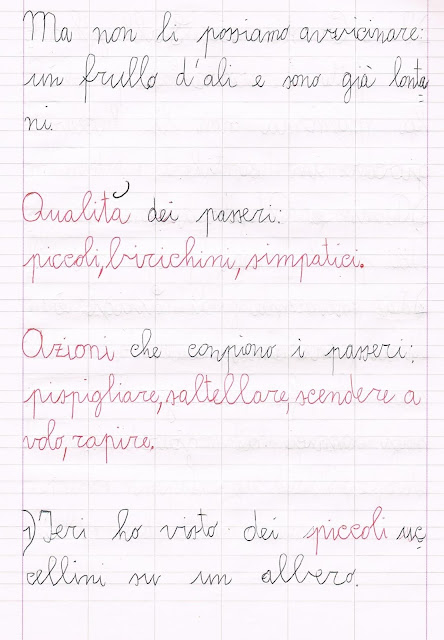 Ma non li possiamo avvicinare:
un frullo d'ali e sono già lonta
ni.
Qualità dei passeri:
piccoli, birichini, simpatici.
Azioni che conpiono i passeri:
pispigliare, saltellare, scendere a
volo, rapire.
1) Ieri ho visto dei piccoli uc
cellini su un albero.